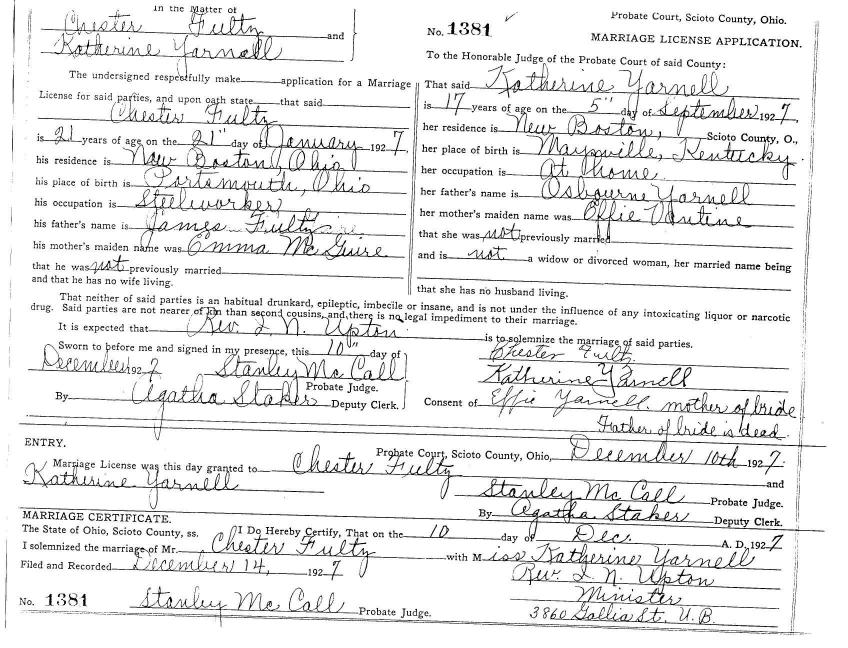 In the Matter of
Chester Fultz
and
Katherine Yarnell
The undersigned respectfully make application for a Marriage
License for said parties, and upon oath state that said
Chester Fultz
is 21 years of age on the 21" day of January 1927,
his residence is New Boston, Ohio
his place of birth is Portsmouth, Ohio
his occupation is Steelworker
his father's name is James Fultz
his mother's maiden name was Emma McGuire
that he was not previously married
and that he has no wife living.
No. 1381
Probate Court, Scioto County, Ohio.
MARRIAGE LICENSE APPLICATION.
To the Honorable Judge of the Probate Court of said County:
That said Katherine Yarnell
is 17 years of age on the 5" day of September 1927,
her residence is New Boston, Scioto County, O.,
her place of birth is Maysville, Kentucky.
her occupation is At home
her father's name is Osbourne Yarnell
her mother's maiden name was Effie
that she was not previously married
and is not a widow or divorced woman, her married name being
that she has no husband living.
That neither of said parties is an habitual drunkard, epileptic, imbecile or insane, and is not under the influence of any intoxicating liquor or narcotic
drug. Said parties are not nearer of kin than second cousins, and there is no legal impediment to their marriage.
It is expected that Rev. I. N. Upton is to solemnize the marriage of said parties.
Sworn to before me and signed in my presence, this 10" day of
December 1927 Stanley McCall
Probate Judge.
By Agatha Staker Deputy Clerk.
Chester Fultz
Katherine Yarnell
Consent of Effie Yarnell. mother of bride
Father of bride is dead.
ENTRY.
Probate Court, Scioto County, Ohio, December 10th 1927.
Marriage License was this day granted to Chester Fultz and
Katherine Yarnell
Stanley McCall Probate Judge.
By Agatha Staker Deputy Clerk.
MARRIAGE CERTIFICATE.
The State of Ohio, Scioto County, ss. I Do Hereby Certify, That on the 10 day of Dec. A. D. 1927
I solemnized the marriage of Mr. Chester Fultz with Miss Katherine Yarnell
Filed and Recorded December 14, 1927
Rev. I. N. Upton
Minister
3860 Gallia St. U.B.
No. 1381 Stanley McCall Probate Judge.